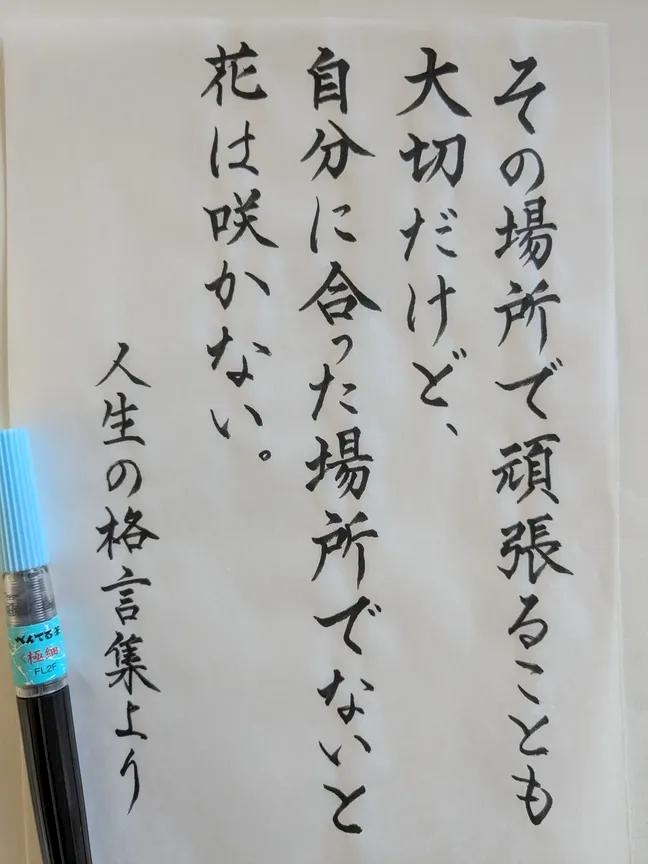 その場所で頑張ることも
大切だけど、
自分に合った場所でないと
花は咲かない。
人生の格言集より
ぺんてる筆
極細
FL2F